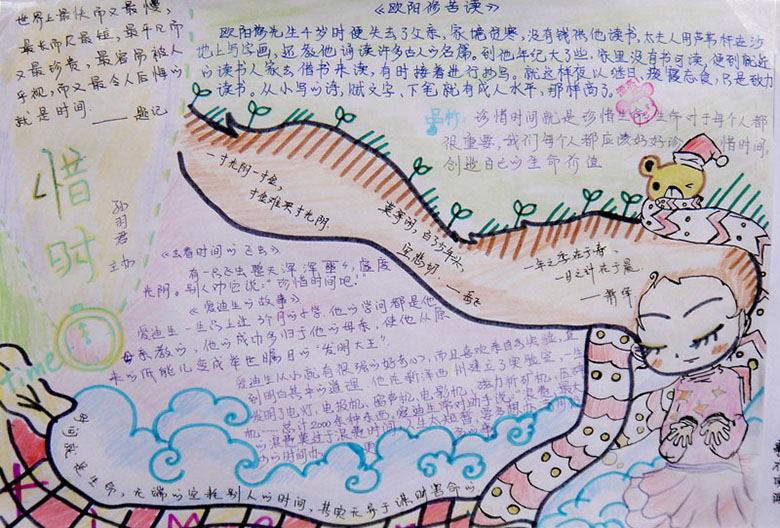 世界上最快而又最慢,
最长而又最短,最平凡而
又最珍贵,最容易被人
忽视,而又最令人后悔的
就是时间. ——题记
《欧阳修苦读》
欧阳修先生4岁时便失去了父亲,家境贫寒,没有钱供他读书,太夫人用芦苇杆在沙
地上写字画,还教他诵读许多古人的名篇。到他年纪大了些,家里没有书可读,便到就近
的读书人家去借书来读,有时接着进行抄写。就这样夜以继日、废寝忘食,只是致力
读书。从小写的诗、赋文字,下笔就有成人水平,那样高了。
珍惜时间就是珍惜生命,生命对于每个人都
很重要,我们每个人都应该好好珍惜时间,
创造自己的生命价值
惜时
孙羽君
主办
一寸光阴一寸金,
寸金难买寸光阴.
莫等闲,白了少年头,
空悲切. ——岳飞
一年之季在于春
一日之计在于晨
——萧绎
《去看时间的飞虫》
有一只飞虫整天浑浑噩噩,虚度
光阴。别人劝它说:"珍惜时间吧!"
《爱迪生的故事》
爱迪生一生只上过3个月的小学,他的学问都是他
母亲教的,他的成功多归于他的母亲,使他从原
来的低能儿变成举世瞩目的"发明大王"
爱迪生从小就有很强的好奇心,而且喜欢亲自去实验,直
到明白其中的道理。他在新泽西州建立了实验室,一生
发明了电灯、电报机、留声机、电影机、磁力析矿机、压碎
机……总计2000余种东西。爱迪生常对助手说:"浪费,最大
的浪费莫过于浪费时间了
time
时间就是生命,无端的空耗别人的时间,其实无异于谋财害命的